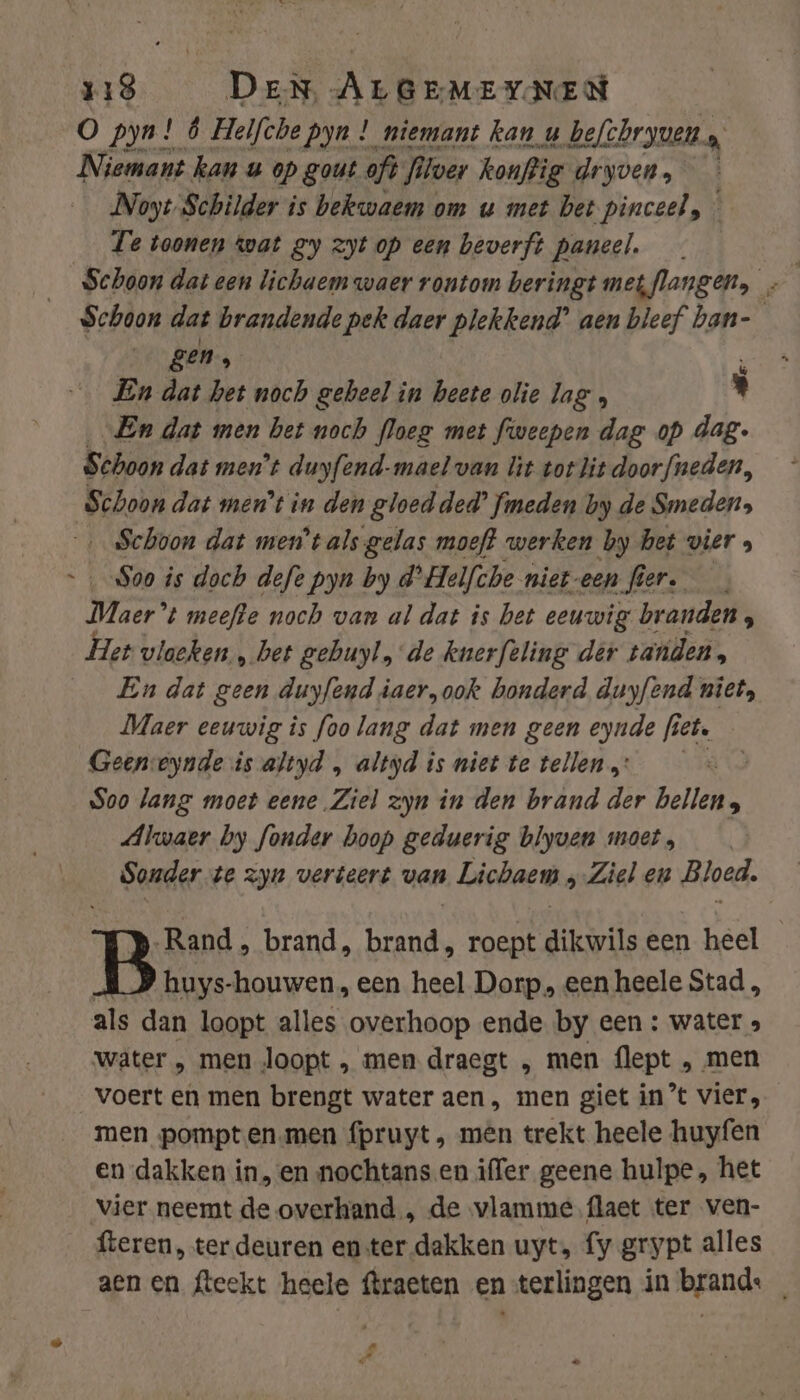 118 DEN ALGEMEYNEN
O pyn! ô Helſche pyn! niemant kan u beſchryven,
Niemant kan u op gout oft ſilver konſtig dryven,
Noyt Schilder is bekwaem om u met het pinceel,
Te toonen wat gy zyt op een beverft paneel.
Schoon dat een lichaem waer rontom beringt met ſlangen,
Schoon dat brandende pek daer plekkend' aen bleef han-
gen,
En dat het noch geheel in heete olie lag,
En dat men het noch ſloeg met ſweepen dag op dag.
Schoon dat men't duyſend-mael van lit tot lit doorſneden,
Schoon dat men't in den gloed ded' ſmeden by de Smeden,
Schoon dat men't als gelas moeſt werken by het vier,
Soo is doch deſe pyn by d'Helſche niet een ſier.
Maer't meeſte noch van al dat is het eeuwig branden,
Het vloeken, het gehuyl, de knerſeling der tanden,
En dat geen duyſend iaer, ook honderd duyſend niet,
Maer eeuwig is ſoo lang dat men geen eynde ſiet.
Geen eynde is altyd, altyd is niet te tellen,
Soo lang moet eene Ziel zyn in den brand der hellen,
Alwaer by ſonder hoop geduerig blyven moet,
Sonder te zyn verteert van Lichaem, Ziel en Bloed.
BRand, brand, brand, roept dikwils een heel
huys-houwen, een heel Dorp, een heele Stad,
als dan loopt alles overhoop ende by een: water,
water, men loopt, men draegt, men ſlept, men
voert en men brengt water aen, men giet in't vier,
men pompt en men ſpruyt, men trekt heele huyſen
en dakken in, en nochtans en iſſer geene hulpe, het
vier neemt de overhand, de vlamme ſlaet ter ven-
ſteren, ter deuren en ter dakken uyt, ſy grypt alles
aen en ſteekt heele ſtraeten en terlingen in brand.